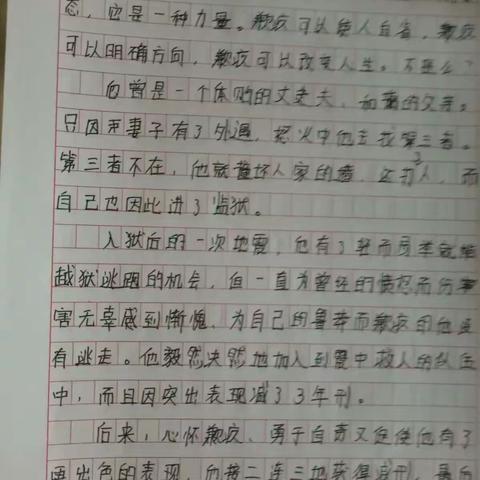 态，它是一种力量。歉疚可以使人自省，歉疚
可以明确方向，歉疚可以改变人生。不是么？
他曾是一个体贴的丈夫，和蔼的父亲。
只因为妻子有了外遇，怒火中他去找第三者。
第三者不在，他就砸坏人家的墙，还打了人，而
自己也因此进了监狱。
入狱后的一次地震，他有了轻而易举就能
越狱逃跑的机会，但一直为曾经的愤怒而伤
害无辜感到惭愧，为自己的鲁莽而歉疚的他没
有逃走。他毅然决然地加入到震中救人的队伍
中，而且因突出表现减了3年刑。
后来，心怀歉疚，勇于自责又促使他有了
更出色的表现，他接二连三地获得减刑，最后